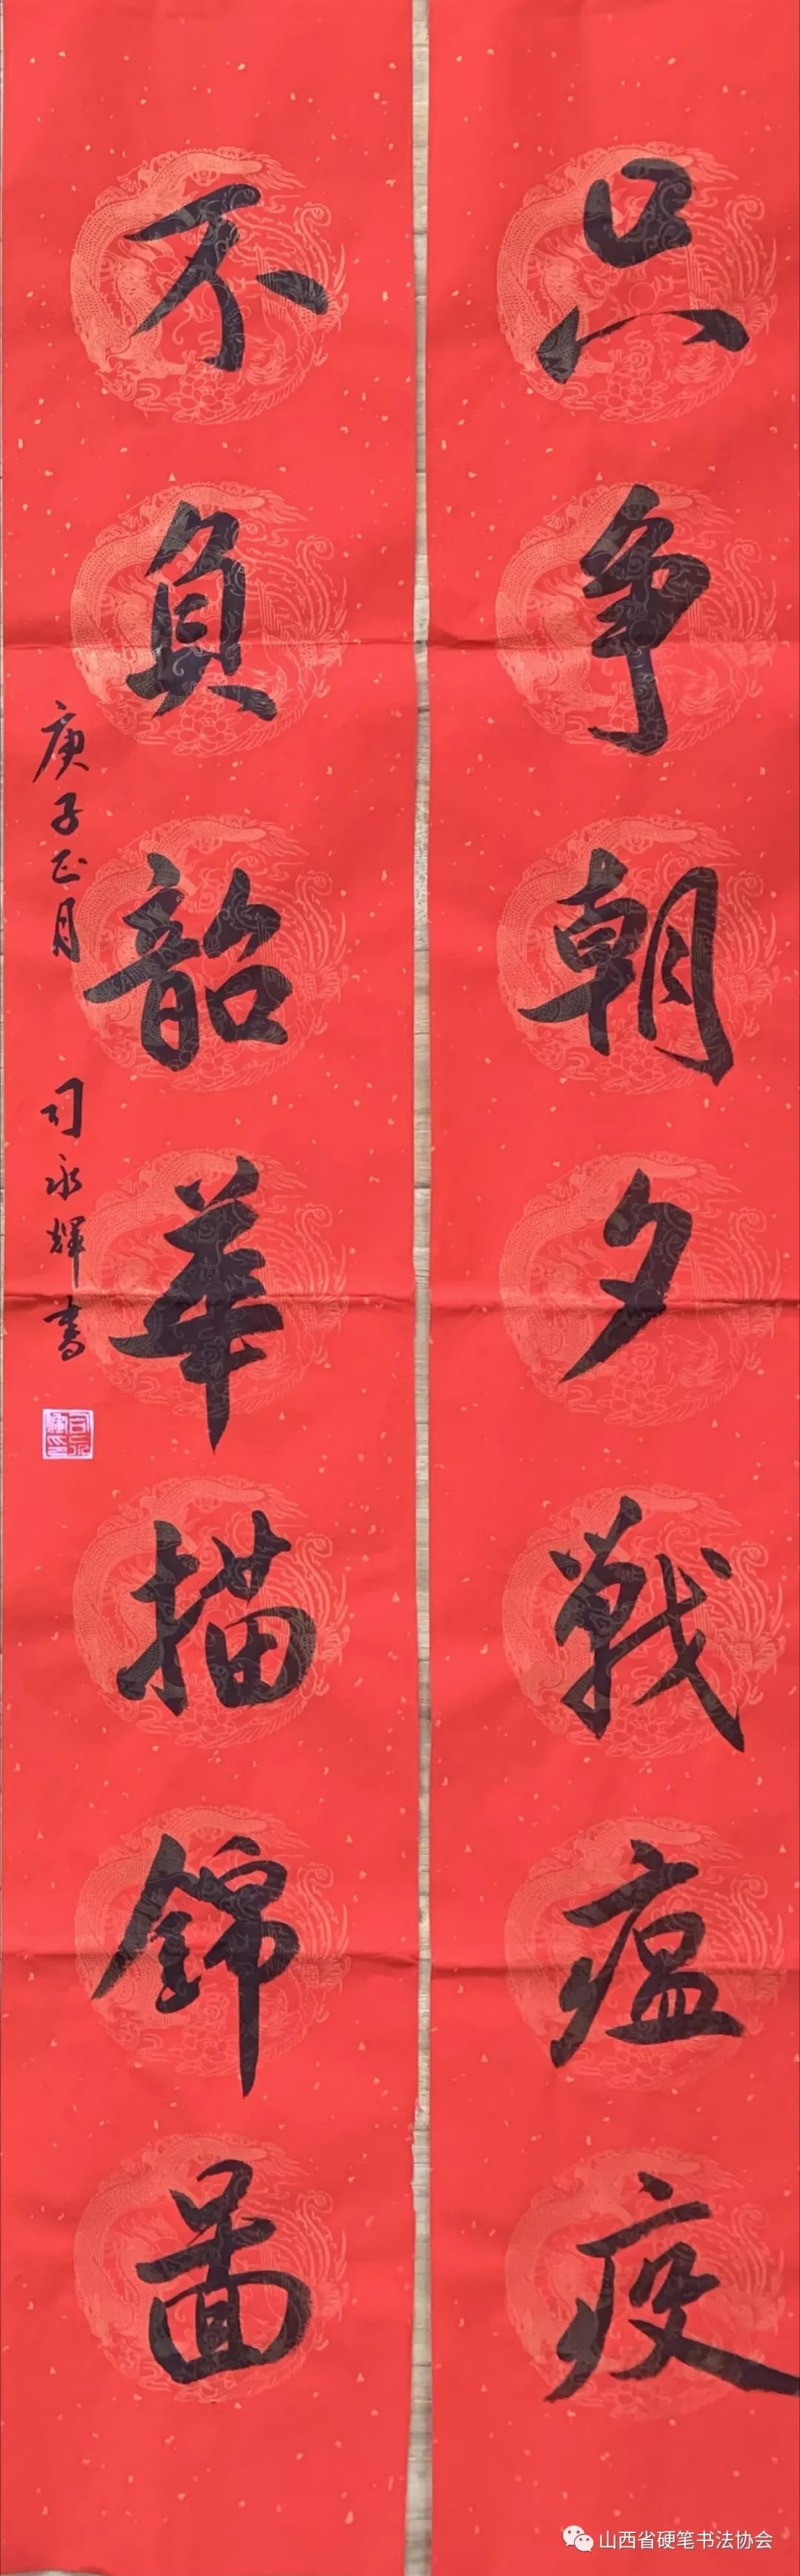 只争朝夕戰瘟疫
不負韶華描錦啚
庚子正月 司永輝書
司永輝印
山西省硬笔书法协会